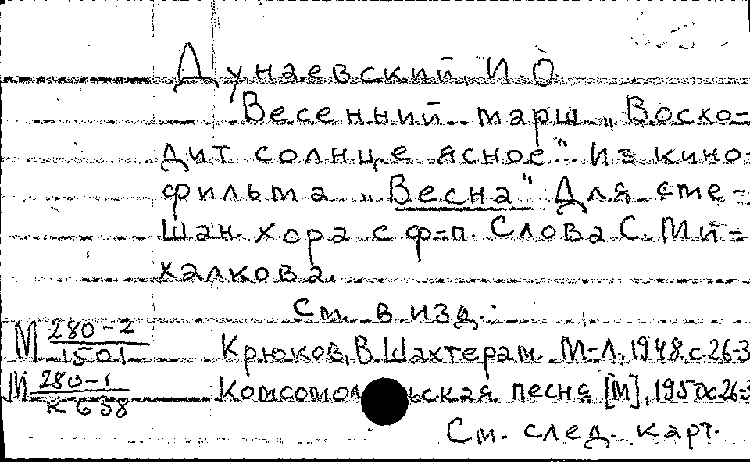 Дунаевский, И.О.
Весенний марш „Восхо=
дит солнце ясное". Из кино=
фильма „Весна" Для сме=
шан. хора с ф=п. Слова С. Ми=
халкова.
См. в изд.:
М 280-2/1501 Крюков, В. Шахтерам. М-Л, 1948, с 26-3
М 280-1/К 638 Комсомольская песня [М], 1950 с 26-3
См. след. карт.